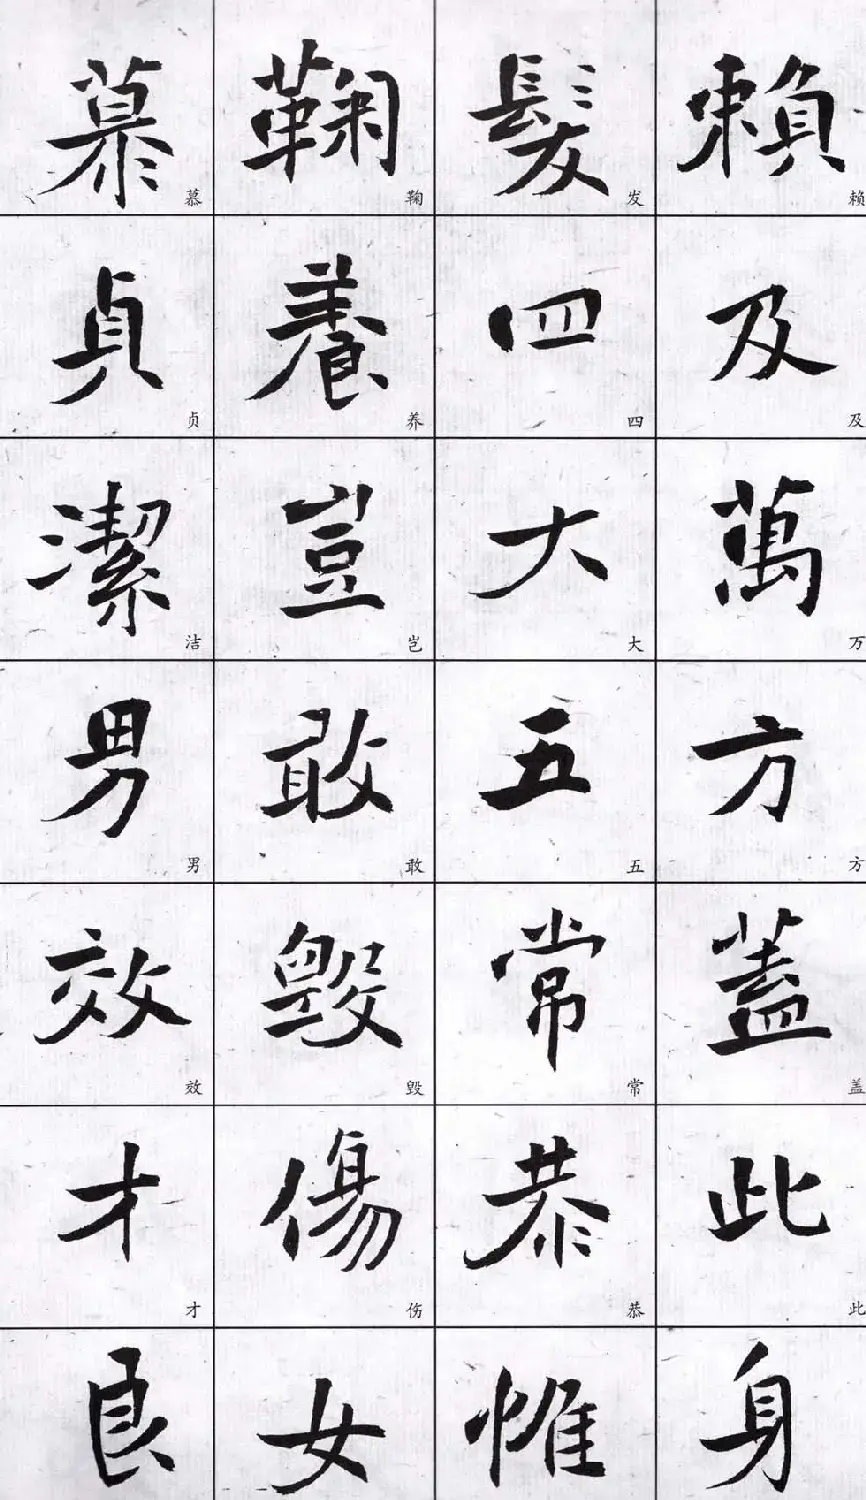 賴及萬方蓋此身
赖及万方盖此
髮四大五常恭惟
发四大五常恭
鞠養豈敢毀傷女
鞠养岂敢毁伤
慕貞潔男效才良
慕贞洁男效才